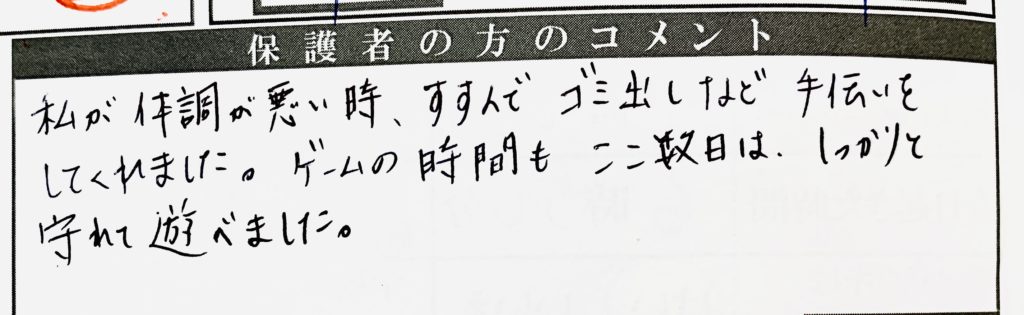 保護者の方のコメント
私が体調が悪い時、すすんでゴミ出しなど手伝いを
してくれました。ゲームの時間もここ数日は、しっかりと
守れて遊べました。